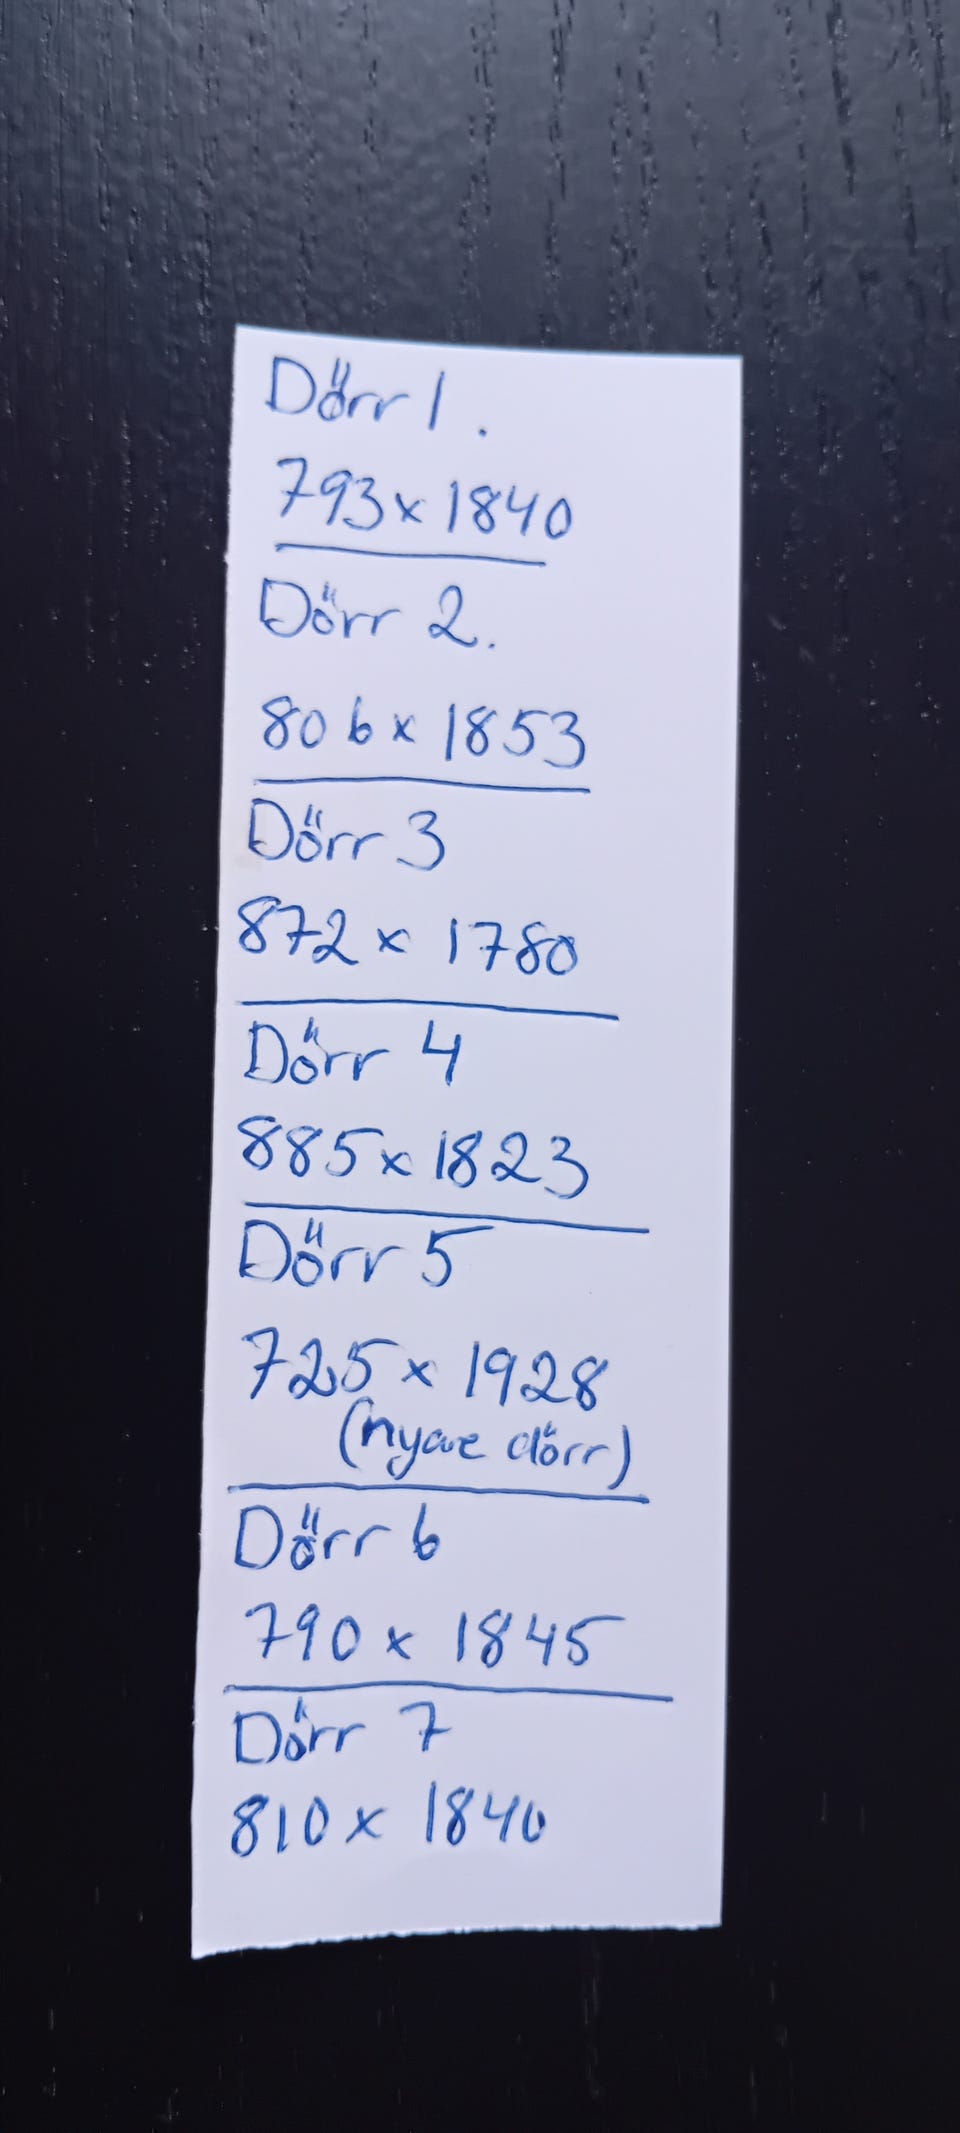 Dörr 1.
793x1840
Dörr 2.
806x1853
Dörr 3
872x1780
Dörr 4
885x1823
Dörr 5
725x1928
(nyare dörr)
Dörr 6
790x1845
Dörr 7
810x1840